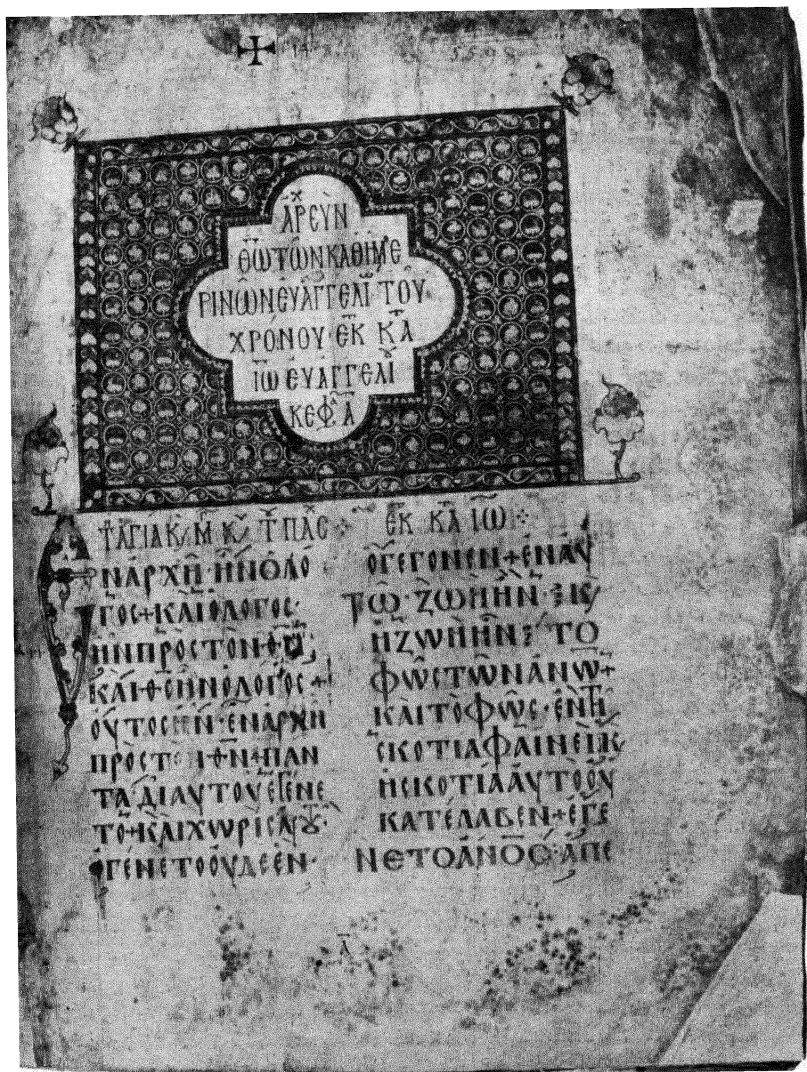 5598
ἈΡΧ ΣΥΝ
ΘΩ ΤῶΝ ΚΑΘΗΜΕ
ΡΙΝῶΝ ΕΥΑΓΓΕΛΙ ΤΟΥ
ΧΡΌΝΟΥ· ΕΚ ΚΑ
ΙΩ ΕΥΑΓΓΕΛΙ
ΚΕΦ Α
ΤΗ ΑΓΙΑ Κ, Μ Κ, Τ ΠΑΣ ⁘ ΕΚ ΚΑ ΙΩ ⁘
ΕΝ ΑΡΧΗ· ΗΝ Ο ΛΌ
ΓΟΣ + ΚΑΙ Ο ΛΟΓΟΣ·
ΗΝ ΠΡΟΣ ΤΟΝ ΘΝ
ΚΑΙ ΘΣ ΗΝ Ο ΛΟΓΟΣ +
ΟΥΤΟΣ ΗΝ· ΕΝ ΑΡΧΗ
ΠΡΟΣ ΤΟΝ ΘΝ + ΠΑΝ
ΤΑ ΔΙ ΑΥΤΟΥ ΕΓΕΝΕ
ΤΟ + ΚΑΙ ΧΩΡΙΣ ΑΥΤΟΥ·
ΕΓΕΝΕΤΟ ΟΥΔΕ ΕΝ·
Ο ΓΕΓΟΝΕΝ + ΕΝ ΑΥ
ΤΩ· ΖΩΗ ΗΝ· Κ,
Η ΖΩΗ ΗΝ ΤΟ
ΦΩΣ ΤῶΝ ΑΝΩΝ +
ΚΑΙ ΤΟ ΦΩΣ· ΕΝ ΤΗ
ΣΚΟΤΙΑ ΦΑΙΝΕΙ Κ,
Η ΣΚΟΤΙΑ ΑΥΤΟ ΟΥ
ΚΑΤΕΛΑΒΕΝ + ΕΓΕ
ΝΕΤΟ ΑΝΟΣ· ΑΠΕ
Α